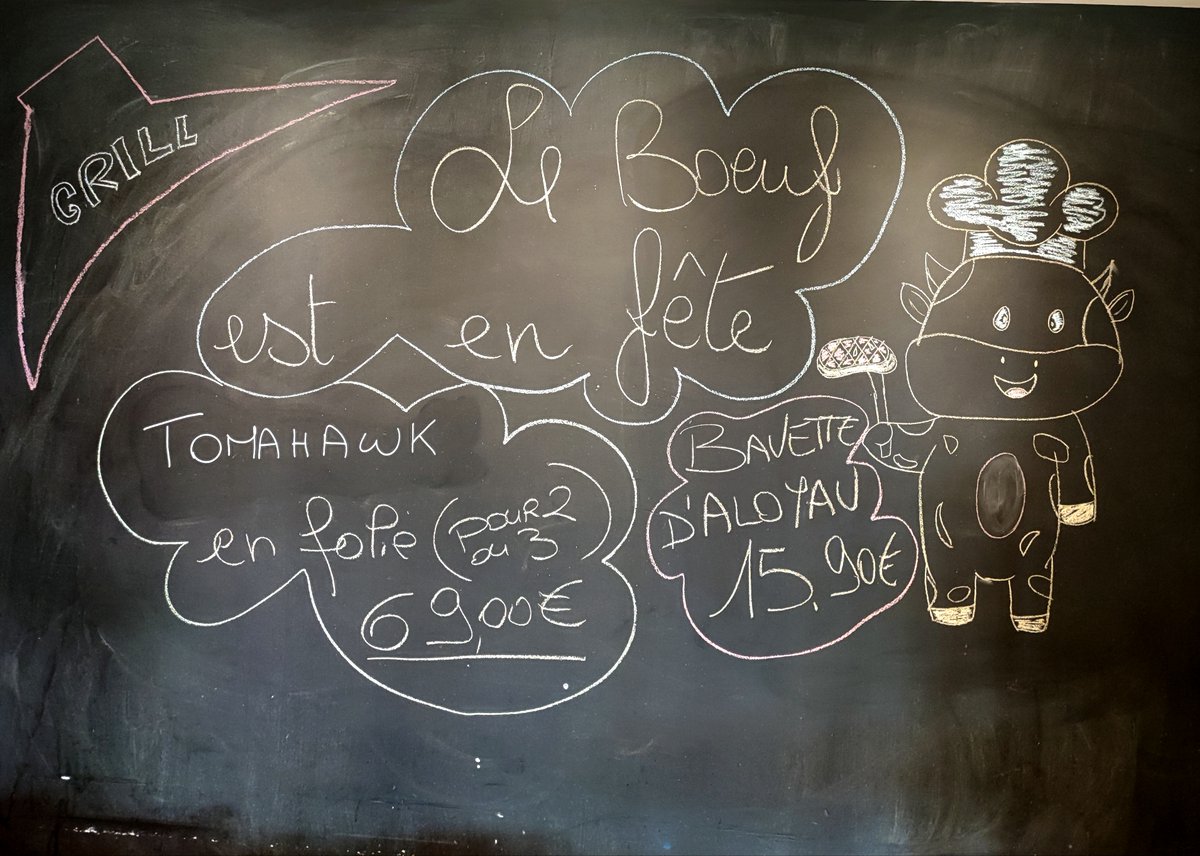 GRILL
Le Boeuf
est en fête
TOMAHAWK
en folie (pour 2
ou 3)
69,00€
BAVETTE
D'ALOYAU
15,90€